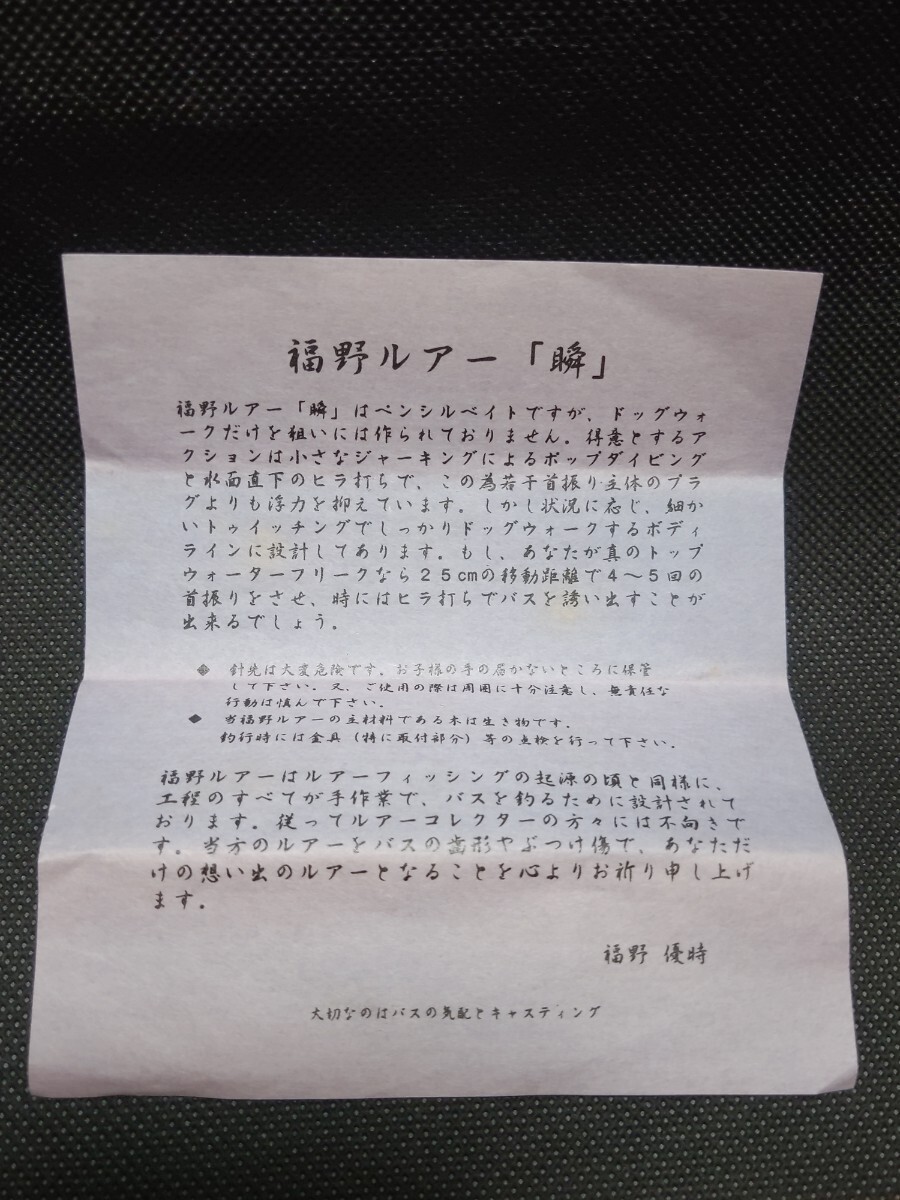 福野ルアー「瞬」
福野ルアー「瞬」はペンシルベイトですが、ドッグウォ
ークだけを狙いには作られておりません。得意とするア
クションは小さなジャーキングによるポップダイビング
と水面直下のヒラ打ちで、この為若干首振り主体のプラ
グよりも浮力を抑えています。しかし状況に応じ、細か
いトゥイッチングでしっかりドッグウォークするボディ
ラインに設計してあります。もし、あなたが真のトップ
ウォーターフリークなら25cmの移動距離で4～5回の
首振りをさせ、時にはヒラ打ちでバスを誘い出すことが
出来るでしょう。
◆ 針先は大変危険です。お子様の手の届かないところに保管
して下さい。又、ご使用の際は周囲に十分注意し、無責任な
行動は慎んで下さい。
◆ 当福野ルアーの主材料である木は生き物です。
釣行時には金具（特に取付部分）等の点検を行って下さい。
福野ルアーはルアーフィッシングの起源の頃と同様に、
工程のすべてが手作業で、バスを釣るために設計されて
おります。従ってルアーコレクターの方々には不向きで
す。当方のルアーをバスの歯形やぶつけ傷で、あなただ
けの想い出のルアーとなることを心よりお祈り申し上げ
ます。
福野 優時
大切なのはバスの気配とキャスティング